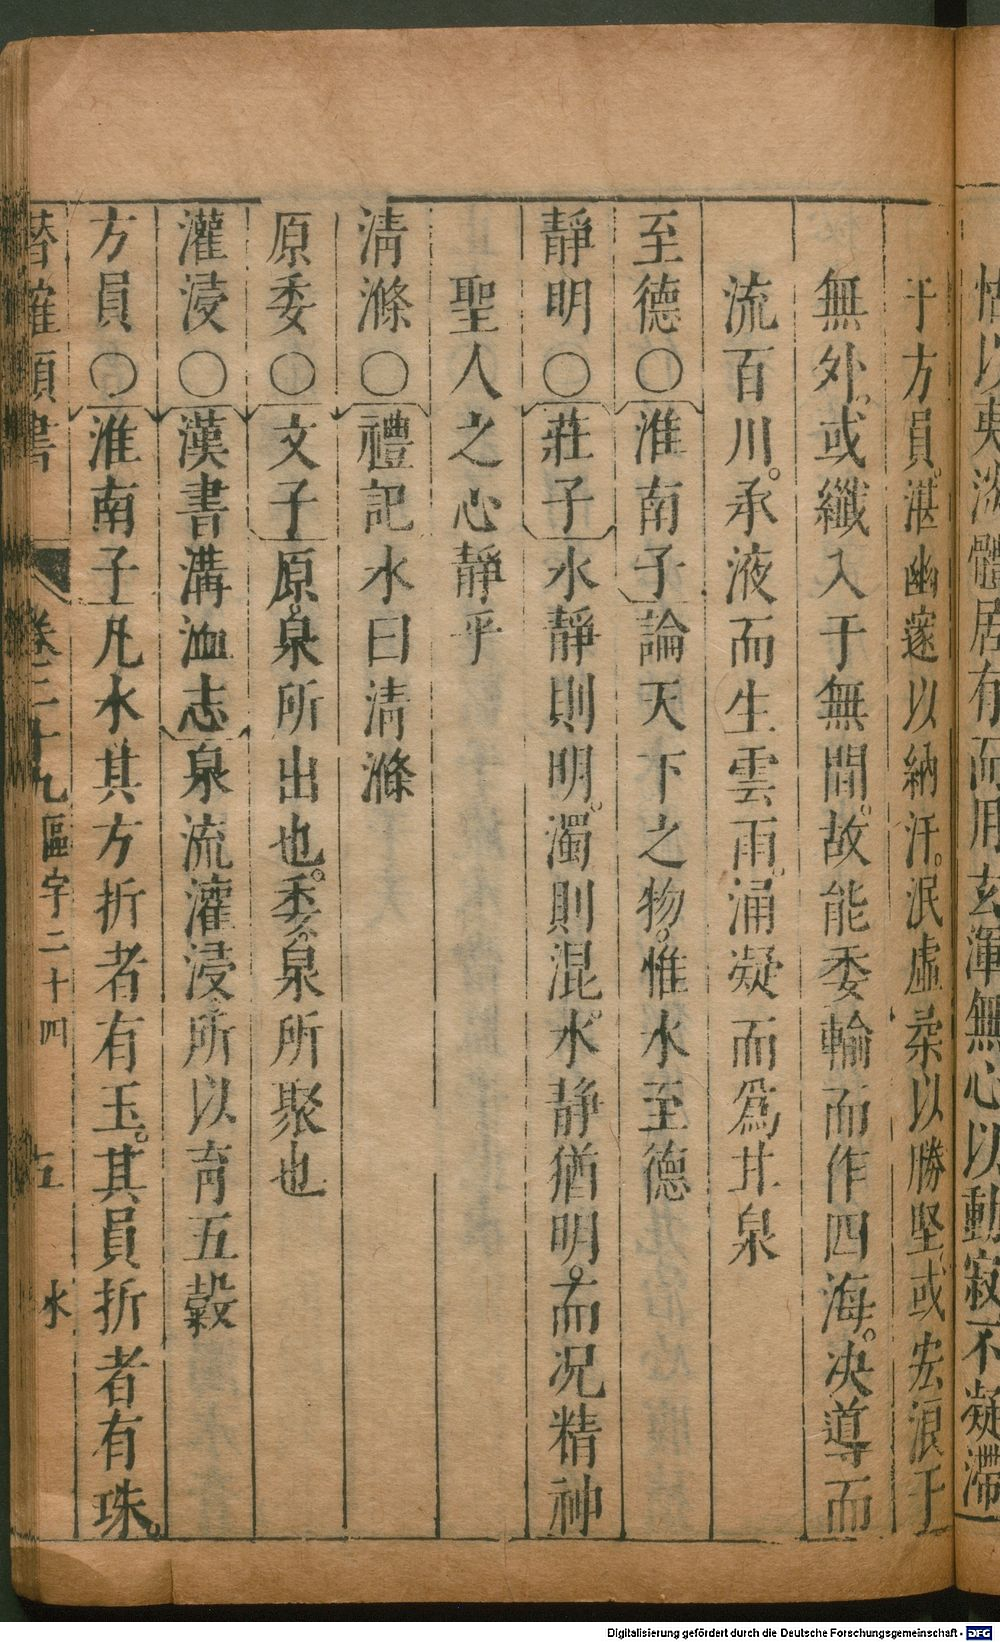 情以*淡體居有而用玄渾無心以動寂不凝滯
于方員湛幽邃以納汙泯虛柔以勝堅或宏浪于
無外。或纖入于無間。故能委輸而作四海。决導而
流百川。承液而生雲雨。涌凝而爲甘泉
至德〇淮南子論天下之物。惟水至德
靜明〇莊子水靜則明。濁則混。水静猶明。而况精神
聖人之心靜乎
淸滌〇禮記水曰淸滌
原委〇文子原。泉所出也。委。泉所聚也
灌浸〇漢書溝洫志泉流灌浸所以育五穀
方員〇淮南子凡水其方折者有玉。其員折者有珠。
潛確類書 卷二十九 區宇二十四 五 水
Digitalisierung gefördert durch die Deutsche Forschungsgemeinschaft - DFG